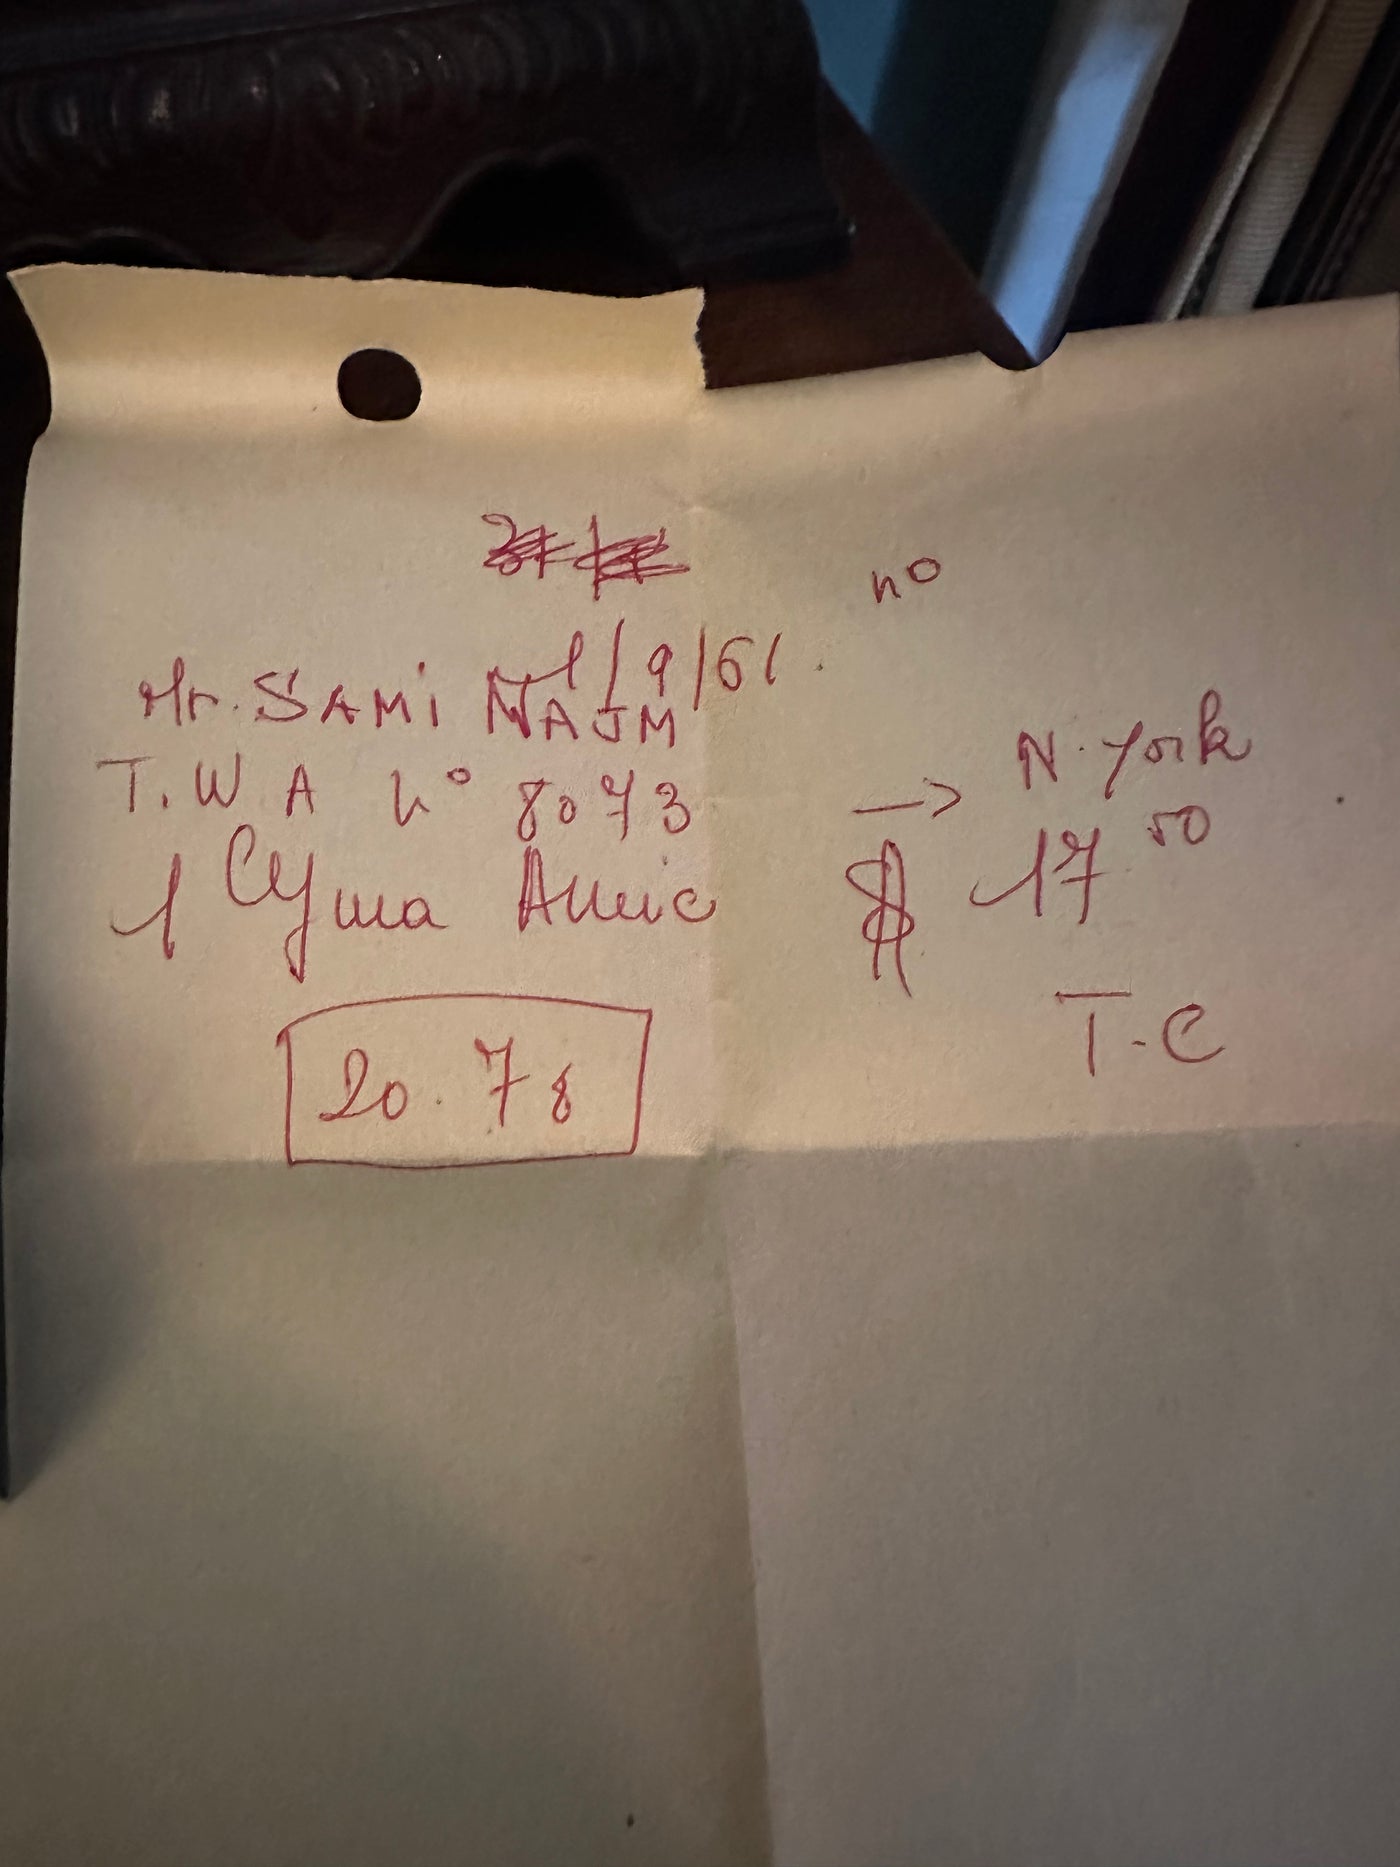 n°
1/9/61.
Mr. SAMi NAJM
T. W A n° 8073
→ N. York
1 Cyma Amic
$ 17.50
T-C
20.78